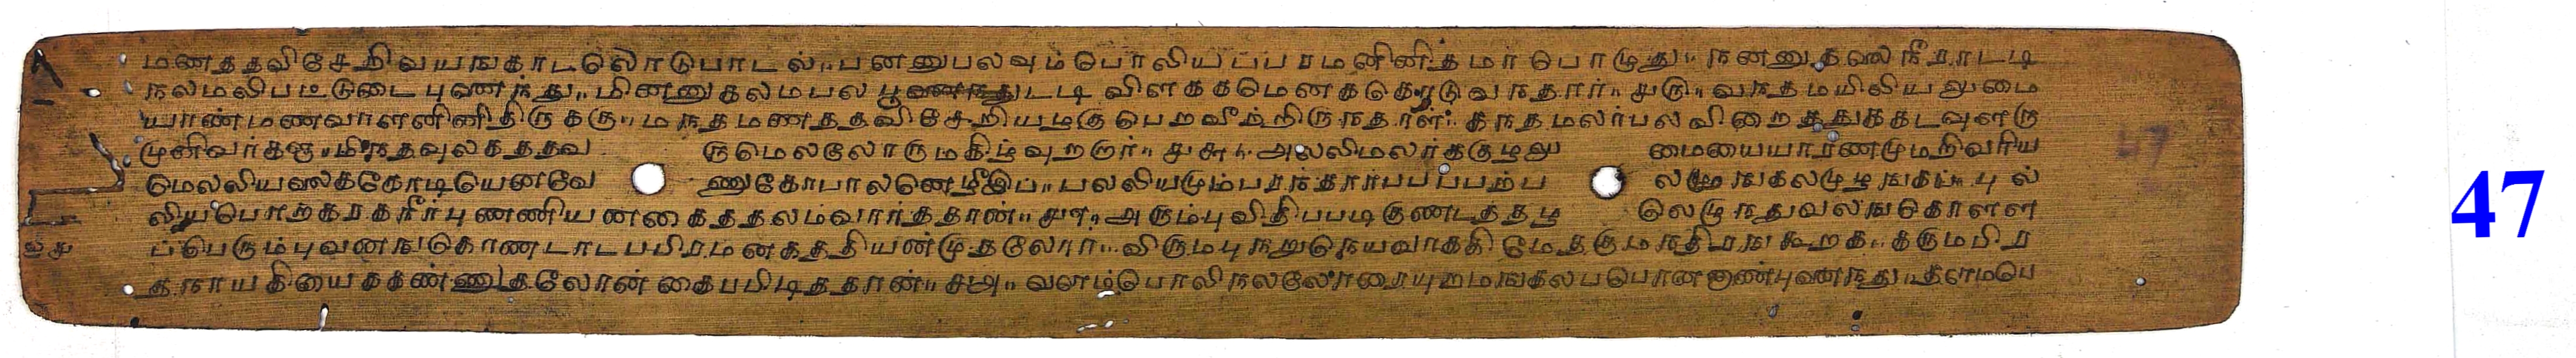 மணததவிசேதிவயஙகாடலொடுபாடல்.. பனனுபலவும்பொலியப்பரமனினிதமர் பொழுது.. நனனுதலைநீராடடி
நலமலிபட்டுடைபுனைந்து.. மினனுகலமபல பூணைநதுடடி விளககமெனககொடுவநதார்.. சரு.. வநதமயிலியலுமை
யாண்மணவாளனினிதிருககு.. மநதமணததவிசேறியழகுபெறவீற்றிருநதாள்.. கநதமலர்பலவிறைததுககடவுளரு
முனிவர்களு.. மிநதவுலகததவ ருமெலலோருமகிழ்வுறறார்.. சசு.. அலலிமலர்ககுழலு மையையாரணமுமறிவரிய
மெலலியலைககோடியெனவே ணுகோபாலனெழீஇப்.. பலலியமும்பரந்தார்பபப்பற்ப லமுஙகலமுழஙகப்.. புல்
லியபொற்கரகநீர்புணணியனகைததலம்வார்த்தான்.. சஎ.. அரும்புவிதிபபடிகுணடததழ லெழுநதுவலஙகொளள
ப்பெரும்புவனஙகொணடாடபபிரமனகததியண்முதலோர.. விருமபுநறுநெயவாககி மேதகுமநதிரஙகூறக.. கருமபிர
தநாயகியைககண்ணுதலோன் கைபபிடிததான்.. சஅ.. வளம்பொலிநலலோரையுறமஙகலபபொனனாண்புனைநது.. தளமபெ
உசு
47